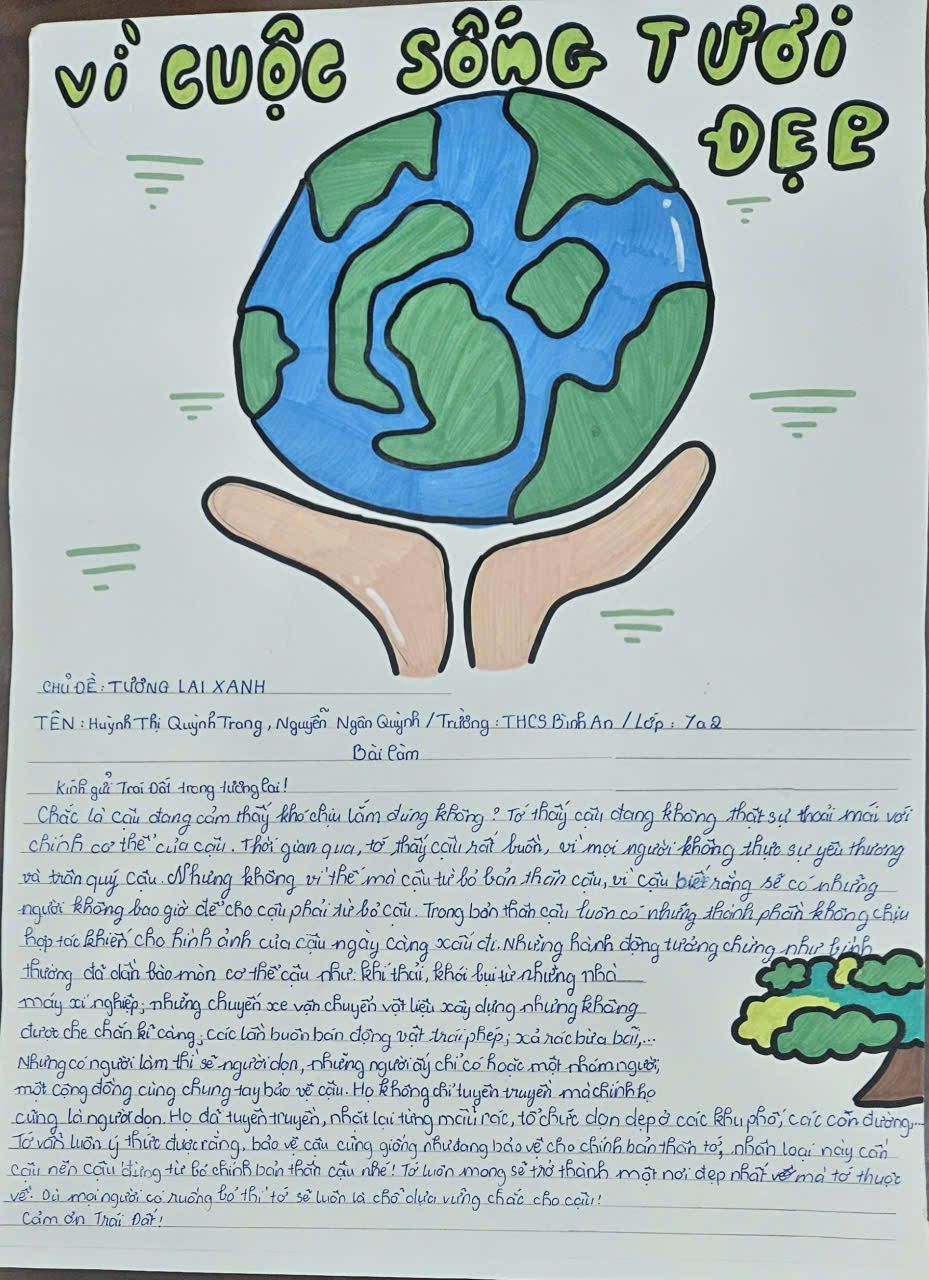 VÌ CUỘC SỐNG TƯƠI
ĐẸP
CHỦ ĐỀ: TƯƠNG LAI XANH
TÊN: Huỳnh Thị Quỳnh Trang, Nguyễn Ngân Quỳnh / Trường: THCS Bình An / Lớp: 7a2
Bài làm
Kính gửi Trái Đất trong tương lai!
Chắc là cậu đang cảm thấy khó chịu lắm đúng không? Tớ thấy cậu đang không thật sự thoải mái với
chính cơ thể của cậu. Thời gian qua, tớ thấy cậu rất buồn, vì mọi người không thực sự yêu thương
và trân quý cậu. Nhưng không vì thế mà cậu từ bỏ bản thân cậu, vì cậu biết rằng sẽ có những
người không bao giờ để cho cậu phải từ bỏ cậu. Trong bản thân cậu luôn có những thành phần không chịu
hợp tác khiến cho hình ảnh của cậu ngày càng xấu đi. Những hành động tưởng chừng như bình
thường đã dần bào mòn cơ thể cậu như: khí thải, khói bụi từ những nhà
máy xí nghiệp; những chuyến xe vận chuyển vật liệu xây dựng nhưng không
được che chắn kĩ càng; các lần buôn bán động vật trái phép; xả rác bừa bãi,...
Nhưng có người làm thì sẽ người dọn, những người ấy chỉ có hoặc một nhóm người,
một cộng đồng cùng chung tay bảo vệ cậu. Họ không chỉ tuyên truyền mà chính họ
cũng là người dọn. Họ đã tuyên truyền, nhặt lại từng mẩu rác, tổ chức dọn dẹp ở các khu phố, các con đường,...
Tớ vẫn luôn ý thức được rằng, bảo vệ cậu cũng giống như đang bảo vệ cho chính bản thân tớ, nhân loại này cần
cậu nên cậu đừng từ bỏ chính bản thân cậu nhé! Tớ luôn mong sẽ trở thành một nơi đẹp nhất mà tớ thuộc
về. Dù mọi người có ruồng bỏ thì tớ sẽ luôn là chỗ dựa vững chắc cho cậu!
Cảm ơn Trái Đất!